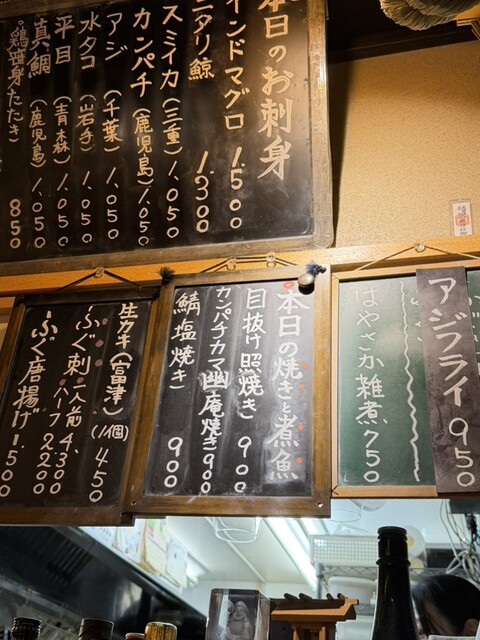 本日のお刺身
インドマグロ 1.500
ニタリ鯨 1.300
スミイカ(三重) 1.050
カンパチ(鹿児島) 1.050
アジ(千葉) 1.050
水タコ(岩手) 1.050
平目(青森) 1.050
真鯛(鹿児島) 1.050
850
アジフライ 950
はやさか雑煮 750
本日の焼きと煮魚
目抜け照焼き 900
カンパチカマ幽庵焼き 900
鯖塩焼き 900
生カキ(富津)(1個) 450
ふぐ刺 一人前 4.300
ハーフ 2.200
ふぐ唐揚げ 1.500